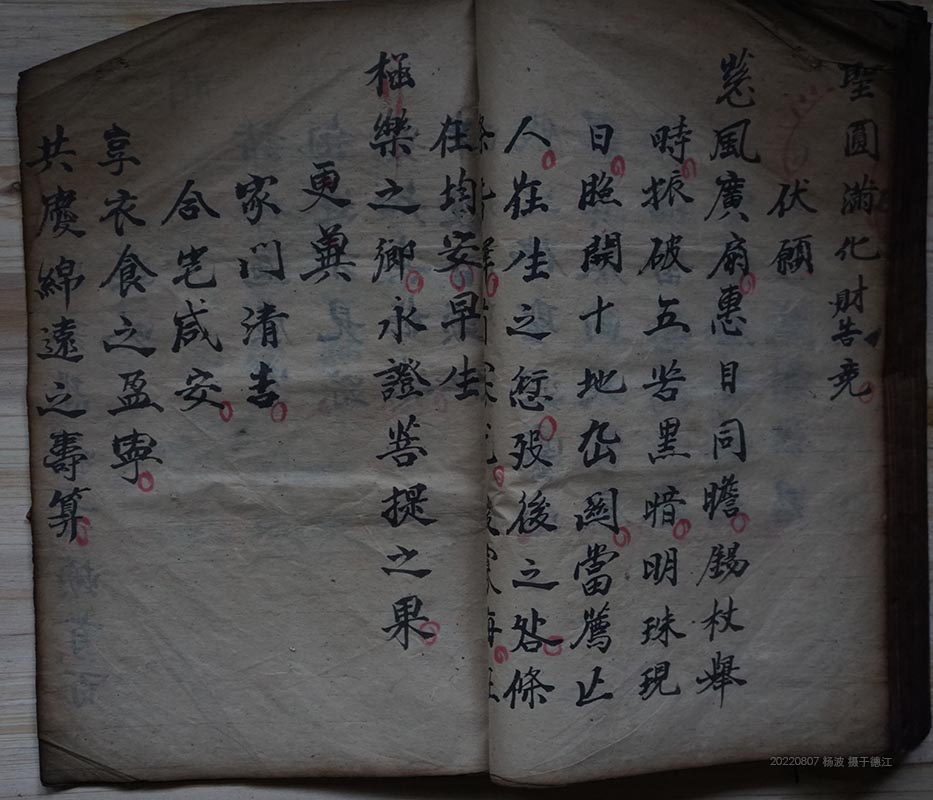 聖圓滿化財告竟
伏願
慈風廣扇惠目同瞻錫杖舉
時振破五苦黑暗明珠現
日照開十地關當薦亡
人在生之愆歿後之咎條
在均安早生
極樂之鄉永證菩提之果
更冀
家門清吉
合宅咸安
享衣食之盈寧
共慶綿遠之壽算
20220807 杨波 摄于德江